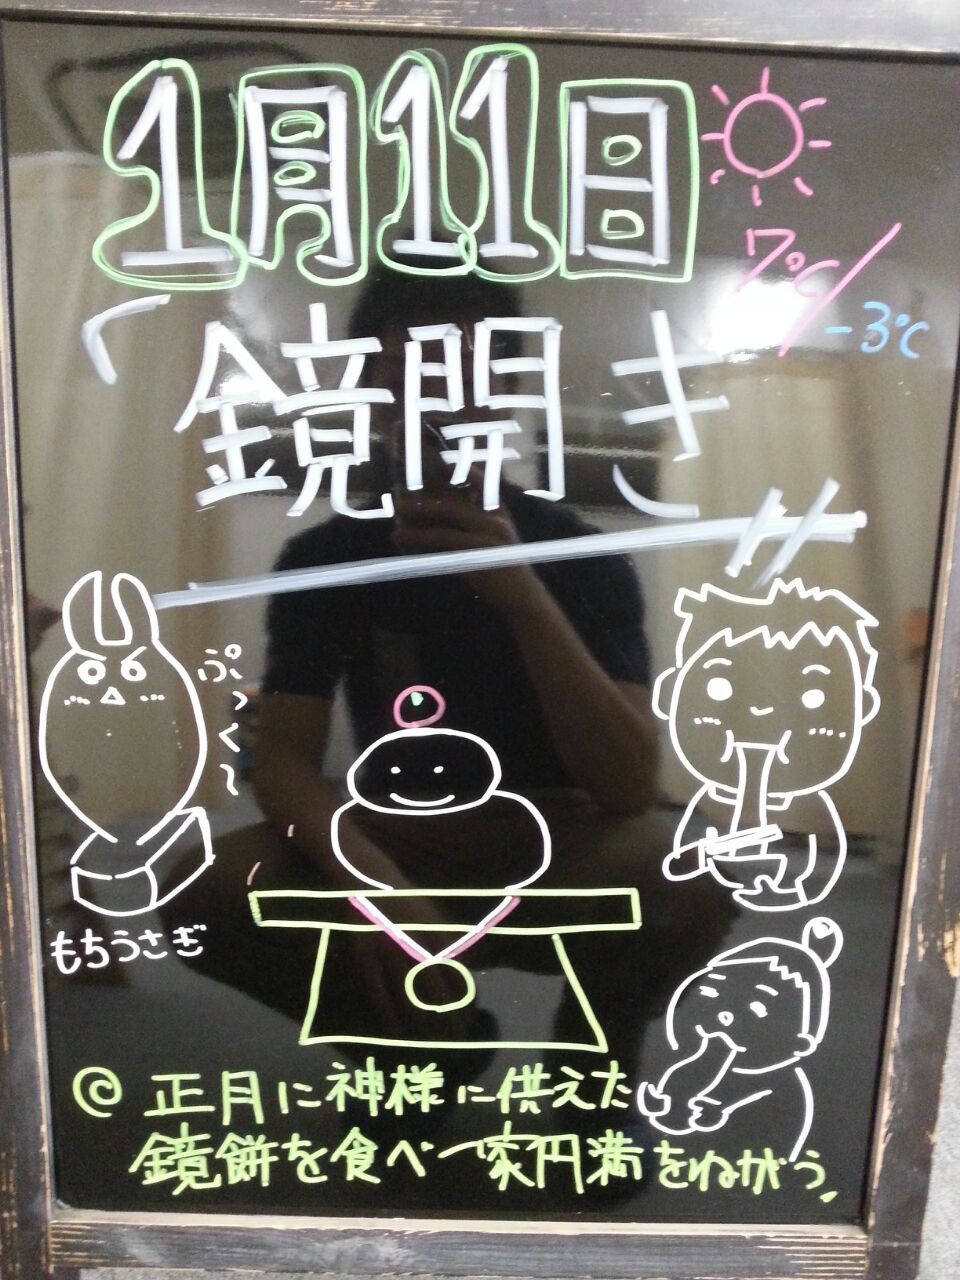 1月11日
7℃/-3℃
「鏡開き」
ぷっく〜
もちうさぎ
◎正月に神様に供えた
鏡餅を食べ一家円満をねがう。